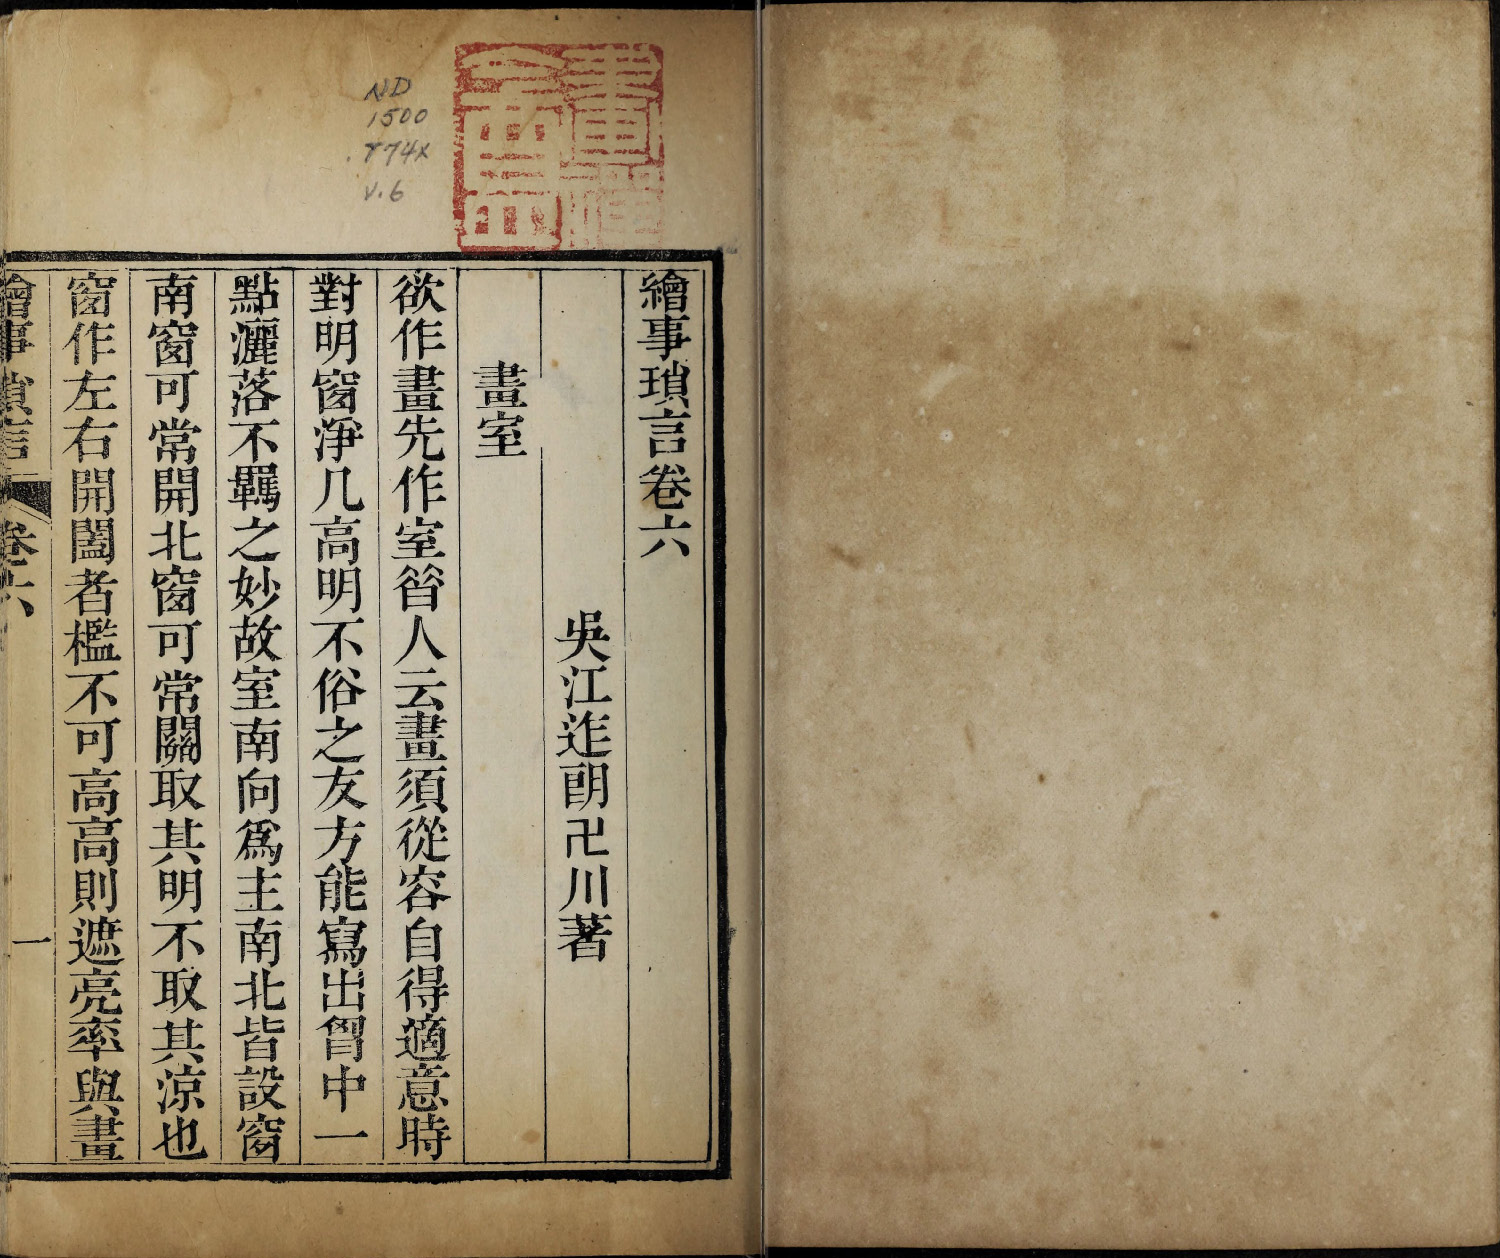 繪事瑣言卷六
吳江迮朗卍川著
畫室
欲作畫先作室昔人云畫須從容自得適意時
對明窗淨几高明不俗之友方能寫出胷中一
點灑落不羈之妙故室南向爲主南北皆設窗
南窗可常開北窗可常關取其明不取其涼也
窗作左右開闔者檻不可高高則遮亮率與畫
繪事瑣言 卷六 一
ND
1500
.Y74x
v.6